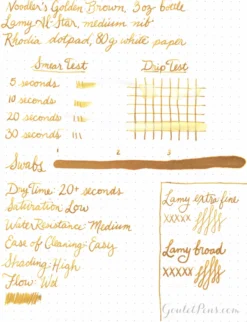 Noodler's Golden Brown 3 oz bottle
Lamy Al-Star, medium nib
Rhodia dotpad, 80g white paper
Smear Test
Drip Test
5 seconds
10 seconds
20 seconds
30 seconds
1 2 3
Swabs
Dry Time: 20+ seconds
Saturation: Low
Water Resistance: Medium
Ease of Cleaning: Easy
Shading: High
Flow: Wet
Lamy extra fine
xxxxx
Lamy broad
xxxxx
GouletPens.com